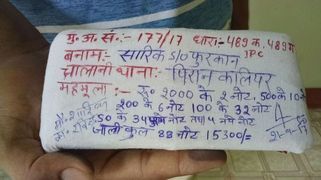 मु. अ. सं.:- 177/17 धारा:- 489 क, 489 ग
IPC
बनाम:- सारिक S/O फुरकान
चालानी थाना:- पिरान कलियर
महमूला:- रु० 2000 के 2 नोट, 500 के 10 नोट
200 के 6 नोट 100 के 32 नोट
50 के 34 नोट तथा 4 नोट
जाली कुल 88 नोट 15300/=